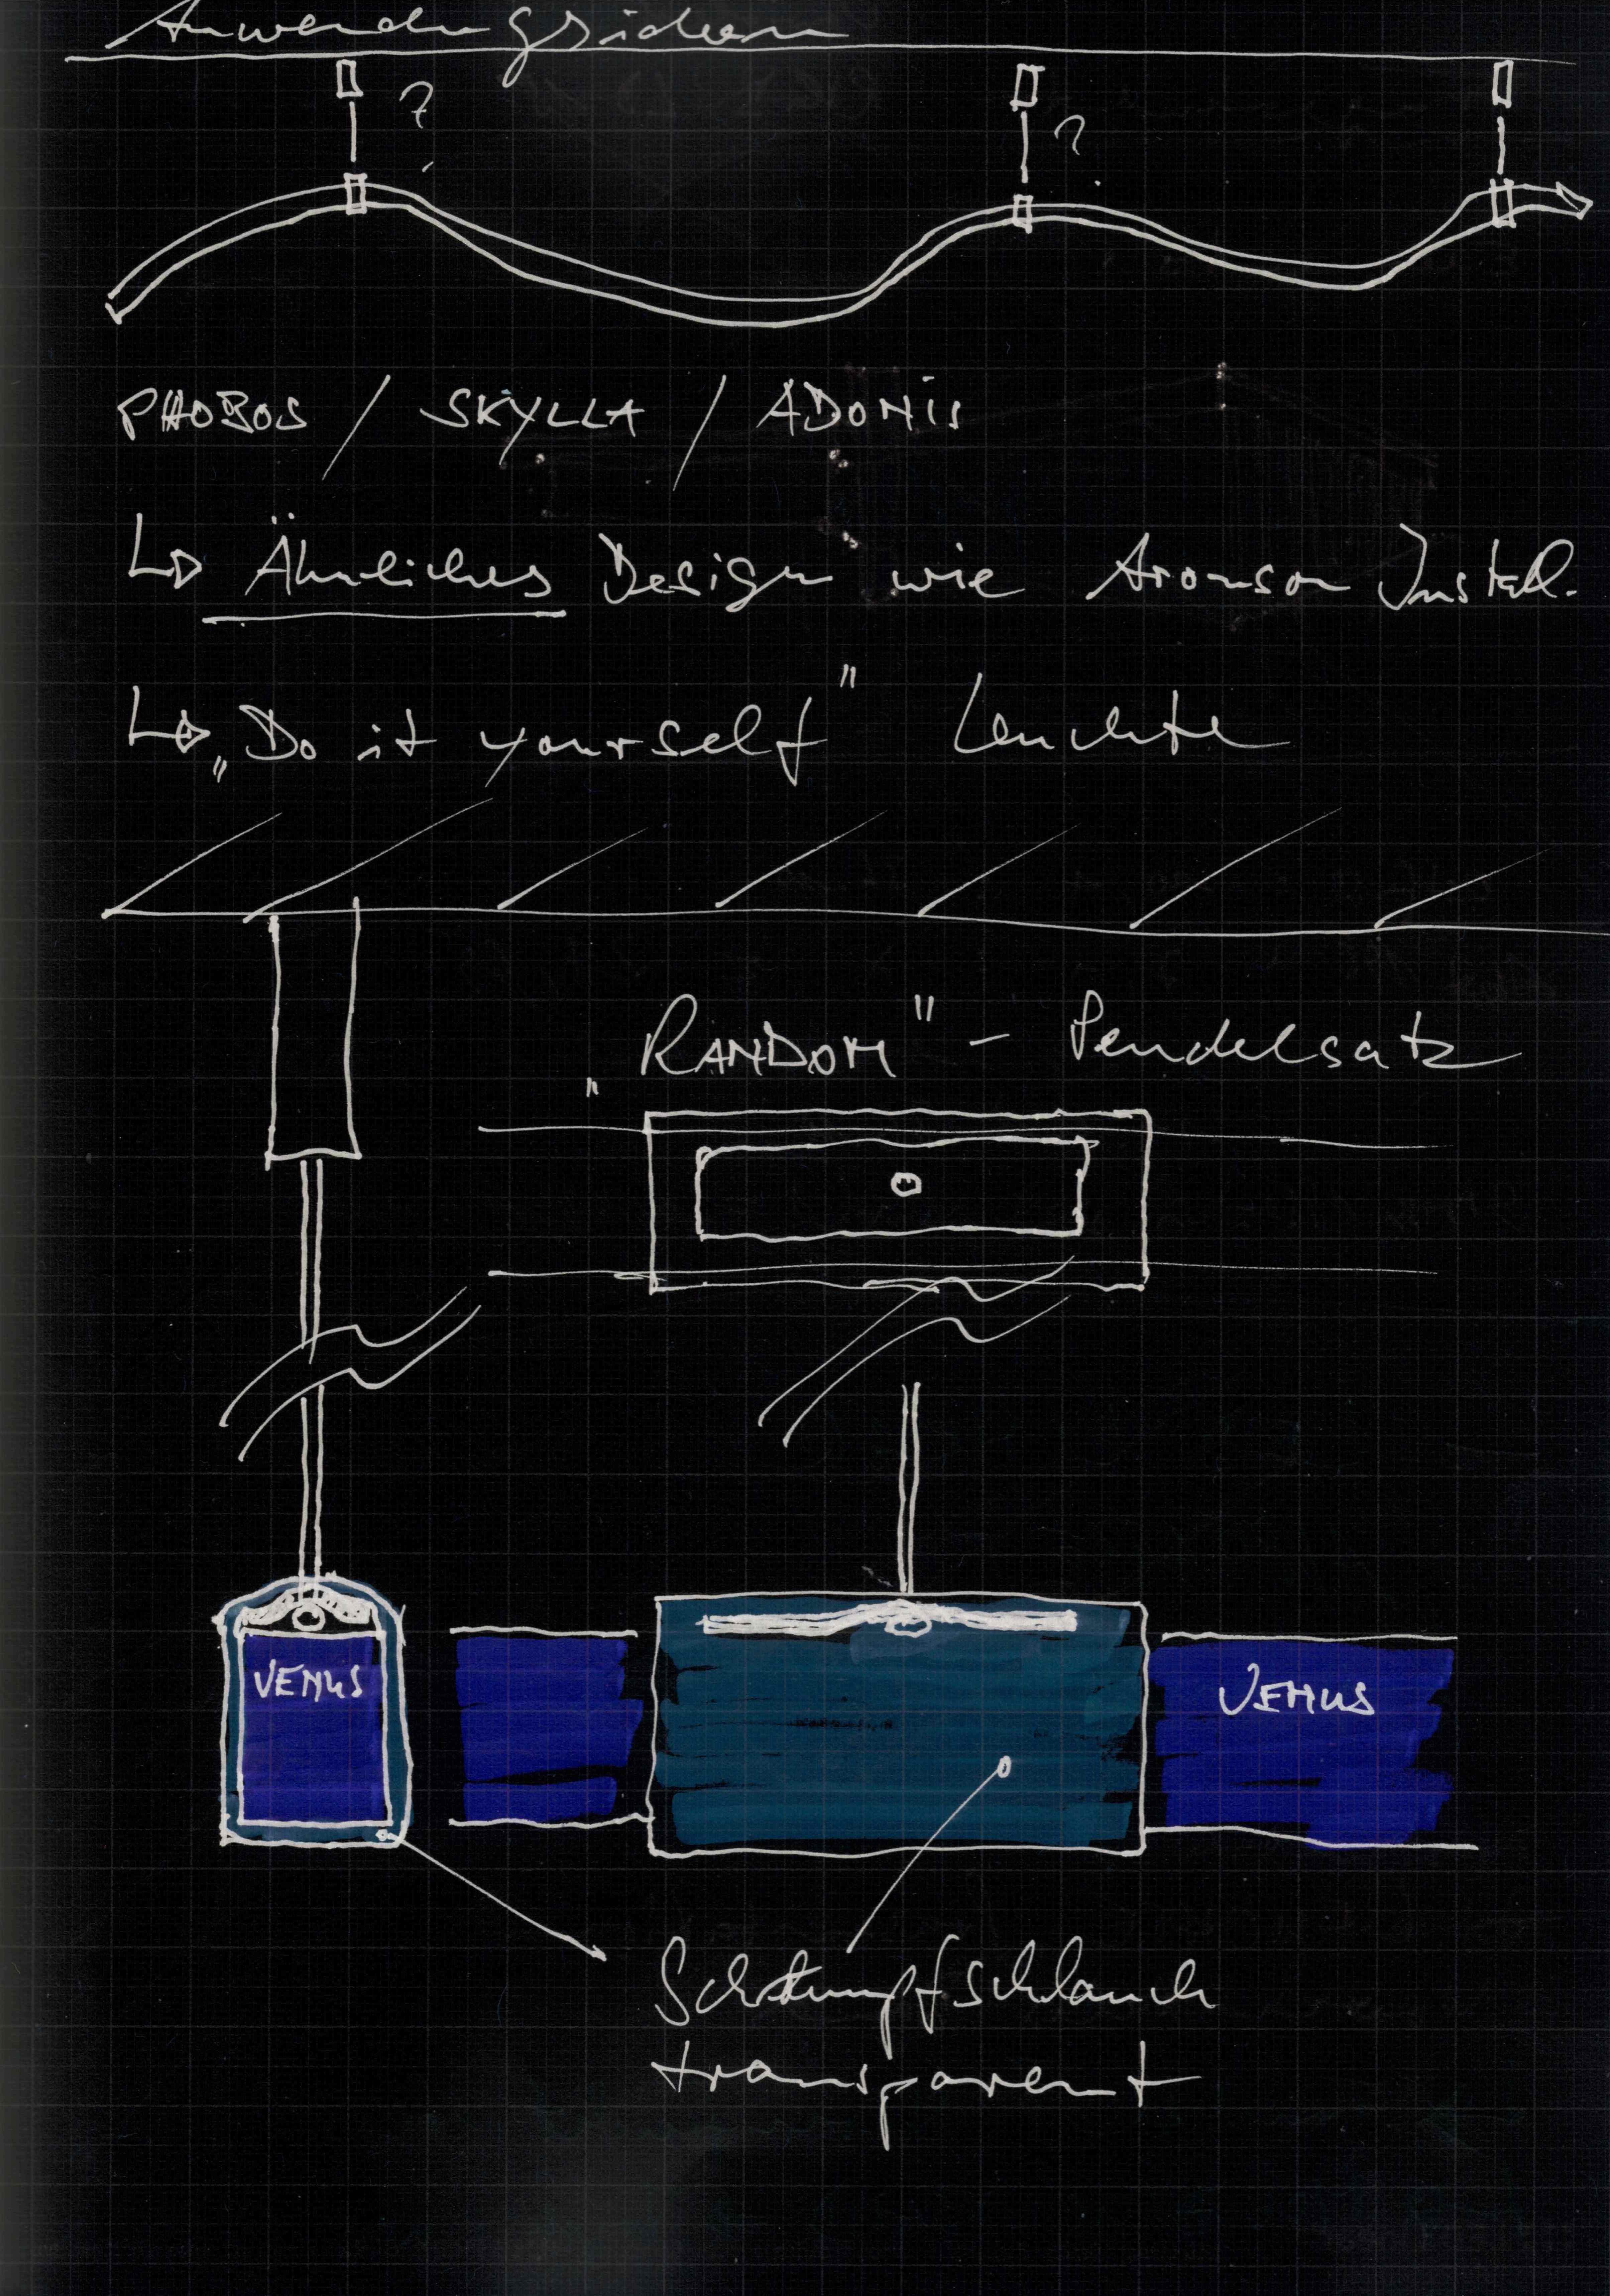 Anwendungsideen
? ?
PHOBOS / SKYLLA / ADONIS
Ähnliches Design wie Aronson Install.
„Do it yourself" Leuchte
„RANDOM" - Pendelsatz
VENUS VENUS
Schrumpfschlauch
transparent